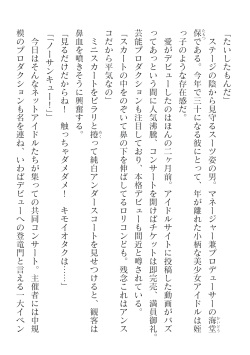 「たいしたもんだ」
　ステージの陰から見守るスーツ姿の男。マネージャー兼プロデューサーの海堂
保である。今年で三十になる彼にとって、年が離れた小柄な美少女アイドルは姪
っ子のような存在感だ。
　愛がデビューしたのはほんの二ヶ月前。アイドルサイトに投稿した動画がバズ
ってあっという間に人気沸騰。コンサートを開けばチケットは即完売、満員御礼。
芸能プロダクションも注目しており、本格デビューも間近と噂されている。
「スカートの中をのぞいて鼻の下を伸ばしてるロリコンども。残念これはアンス
コだから平気なの」
　ミニスカートをピラリと捲って純白アンダースコートを見せつけると、観客は
鼻血を噴きそうに興奮する。
「見るだけだからね！　触っちゃダメダメ！　キモイオタクは……」
「「ノーサンキュー！」」
　今日はそんなネットアイドルたちが集っての共同コンサート。主催者には中規
模のプロダクションも名を連ね、いわばデビューへの登竜門と言える一大イベン